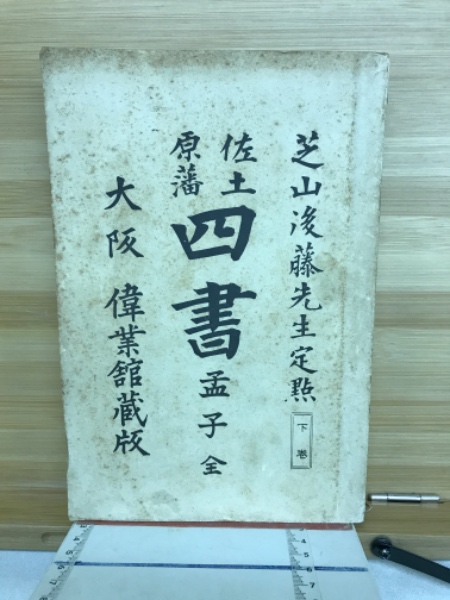 芝山後藤先生定點
下卷
佐土
原藩
四書
孟子全
大阪 偉業館蔵版